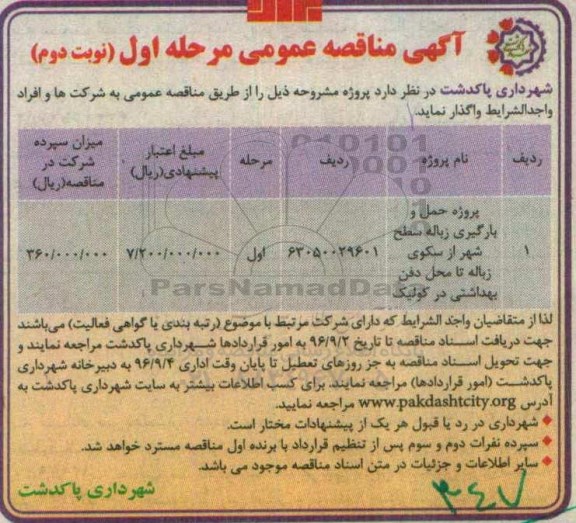 آگهی مناقصه عمومی مرحله اول (نوبت دوم)
شهرداری پاکدشت در نظر دارد پروژه مشروحه ذیل را از طریق مناقصه عمومی به شرکت ها و افراد
واجدالشرایط واگذار نماید.
ردیف نام پروژه ردیف مرحله مبلغ اعتبار پیشنهادی(ریال) میزان سپرده شرکت در مناقصه(ریال)
۱ پروژه حمل و بارگیری زباله سطح شهر از سکوی زباله تا محل دفن بهداشتی در کوئیک ۶۳۰۵۰۰۲۹۶۰۱ اول ۷/۲۰۰/۰۰۰/۰۰۰ ۳۶۰/۰۰۰/۰۰۰
ParsNamadData
لذا از متقاضیان واجد الشرایط که دارای شرکت مرتبط با موضوع (رتبه بندی یا گواهی فعالیت) می‌باشند
جهت دریافت اسناد مناقصه تا تاریخ ۹۶/۹/۲ به امور قراردادها شهرداری پاکدشت مراجعه نمایند و
جهت تحویل اسناد مناقصه به جز روزهای تعطیل تا پایان وقت اداری ۹۶/۹/۴ به دبیرخانه شهرداری
پاکدشت (امور قراردادها) مراجعه نمایند. برای کسب اطلاعات بیشتر به سایت شهرداری پاکدشت به
آدرس www.pakdashtcity.org مراجعه نمایید.
♦ شهرداری در رد یا قبول هر یک از پیشنهادات مختار است.
♦ سپرده نفرات دوم و سوم پس از تنظیم قرارداد با برنده اول مناقصه مسترد خواهد شد.
♦ سایر اطلاعات و جزئیات در متن اسناد مناقصه موجود می باشد.
شهرداری پاکدشت
۳۴۷